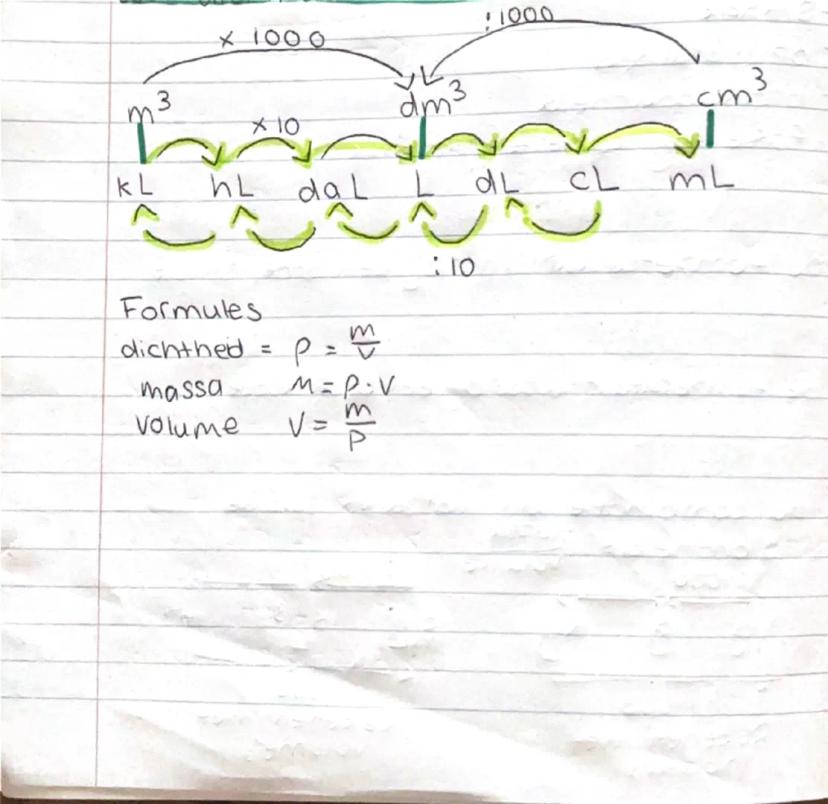 x 1000 :1000
m³ dm³ cm³
x 10
kL hL daL L dL cL mL
:10
Formules
dichtheid = ρ = m/v
massa m = ρ · V
volume V = m/ρ